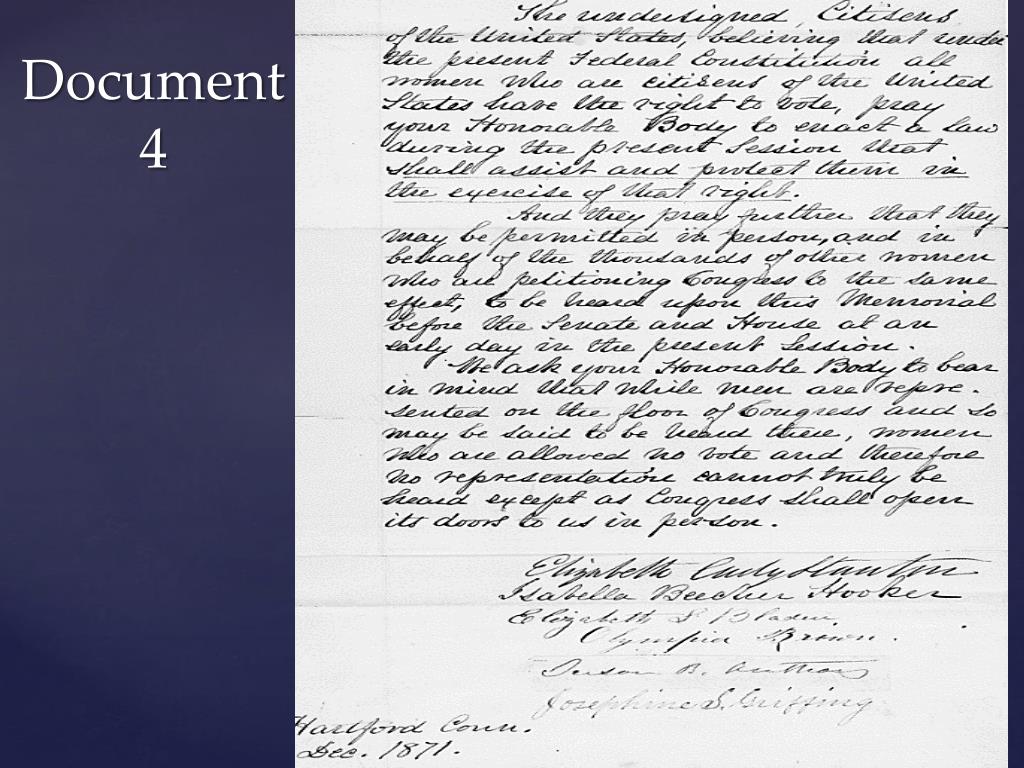 Document
4
The undersigned, Citizens
of the United States, believing that under
the present Federal Constitution all
women who are citizens of the United
States have the right to vote, pray
your Honorable Body to enact a law
during the present Session that
shall assist and protect them in
the exercise of that right.
And they pray further that they
may be permitted in person, and in
behalf of the thousands of other women
who are petitioning Congress to the same
effect, to be heard upon this Memorial
before the Senate and House at an
early day in the present Session.
We ask your Honorable Body to bear
in mind that while men are repre-
sented on the floor of Congress and so
may be said to be heard there, women
who are allowed no vote and therefore
no representation cannot truly be
heard except as Congress shall open
its doors to us in person.
Elizabeth Cady Stanton
Isabella Beecher Hooker
Elizabeth L Bladen.
Olympia Brown.
Susan B. Anthony
Josephine S. Griffing
Hartford Conn.
Dec. 1871.